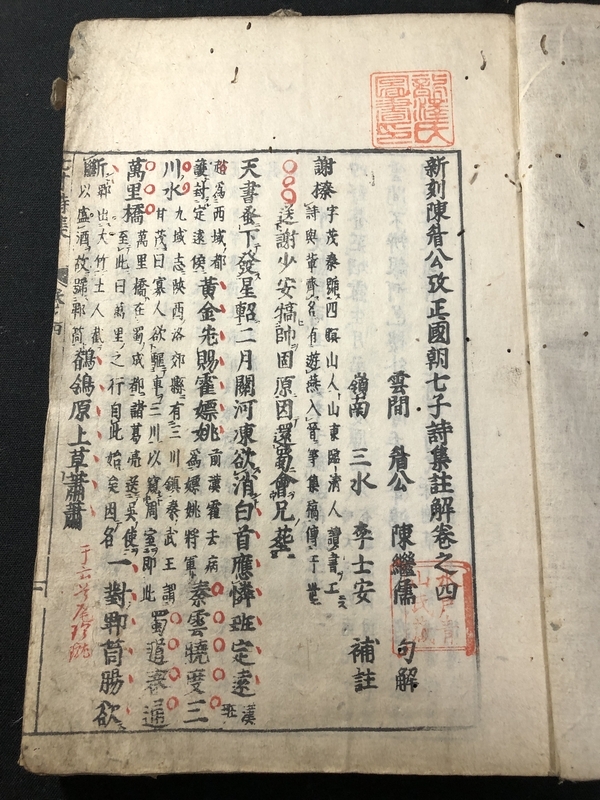 新刻陳眉公攷正國朝七子詩集註解卷之四
雲間 眉公 陳繼儒 句解
嶺南 三水 李士安 補註
謝榛 字茂秦號四溟山人山東臨清人讀書工
詩與輩齊名有遊燕入晉等集稿傳于世
送謝少安犒師固原因還蜀會兄葬
天書早下發星軺二月關河凍欲消白首應憐班定遠 漢班
超為西域都護封定遠侯 黃金先賜霍嫖姚 前漢霍去病為嫖姚將軍 秦雲曉度三
川水 九域志陝西洛郊縣有三川鎮秦武王謂甘茂曰寡人欲驅車三川以窺周室即此 蜀道春通
萬里橋 萬里橋在蜀成都諸葛亮送吳使至此曰萬里之行自此始矣因名 一對郫筒腸欲
斷 郫山大竹土人截以盛酒故歸郫筒 鶺鴒原上草蕭蕭